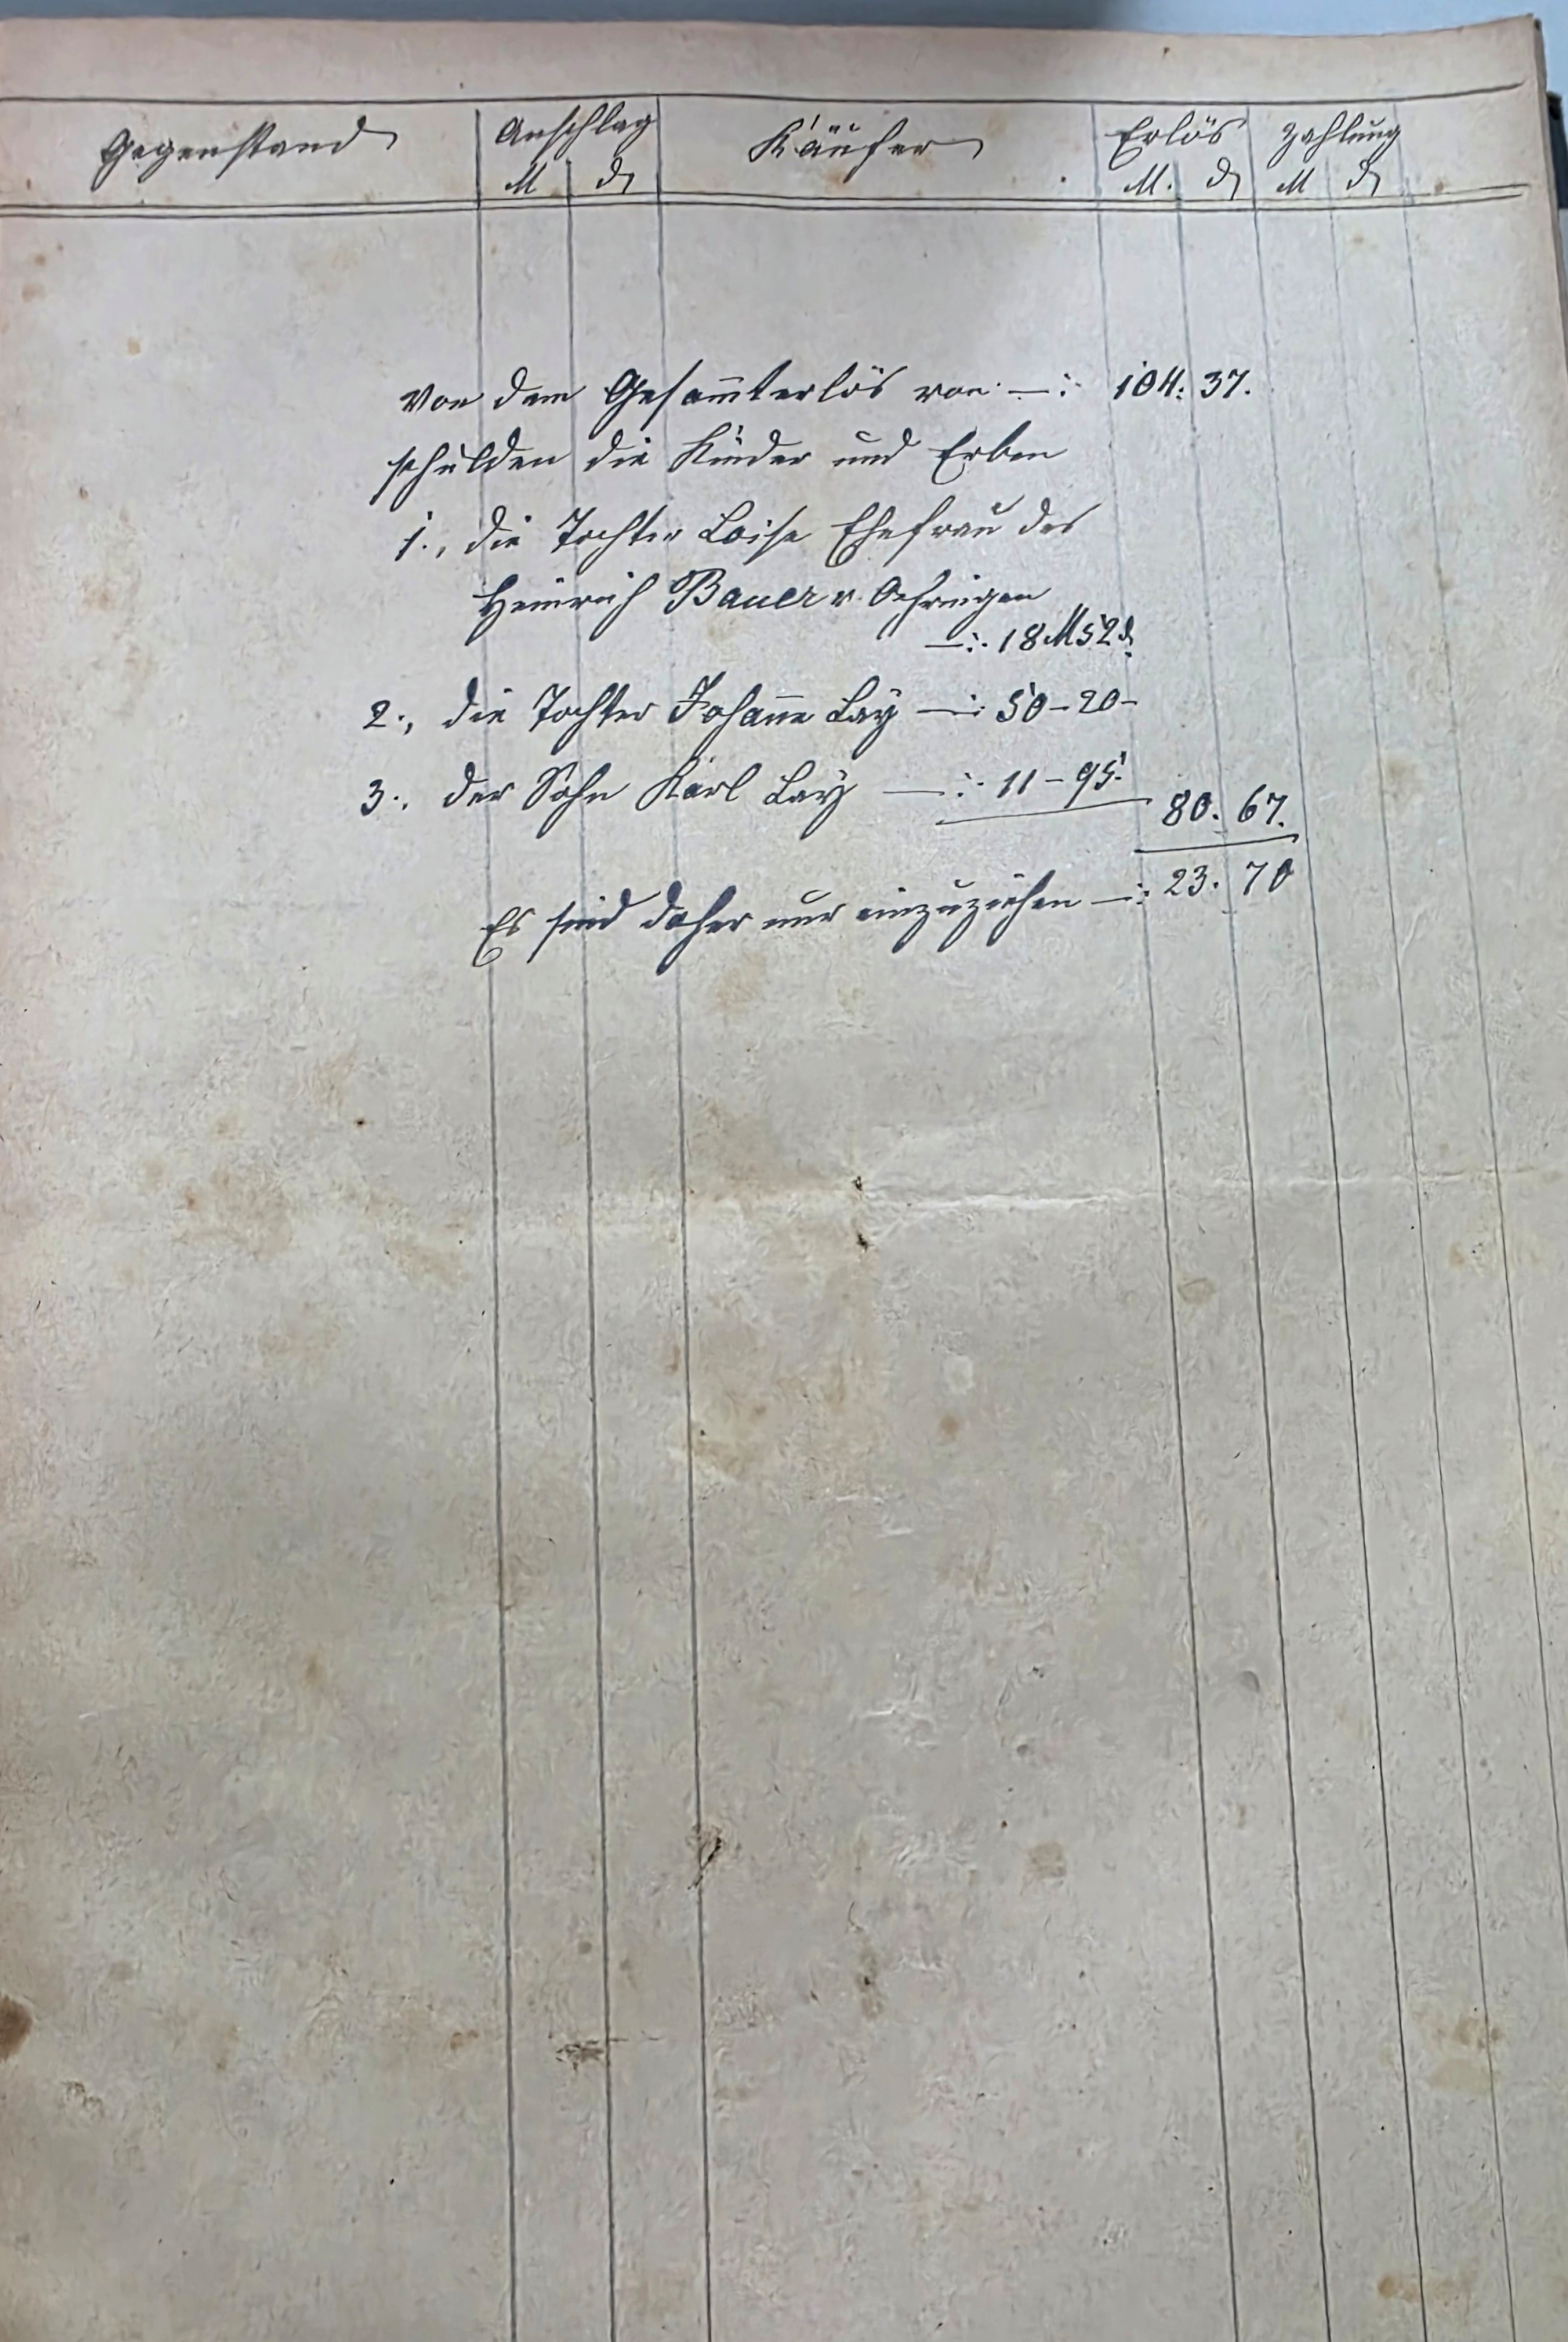 Gegenstand Anschlag Käufer Erlös Zahlung
M ₰ M. ₰ M ₰
Von dem Gesam̅terlös von —: 104. 37.
schulden die Kinder und Erben
1., die Tochter Loise Ehefrau des
Heinrich Bauer v. Oehringen
—: 18 M 52 ₰
2., die Tochter Johan̅e Lay —: 50 - 20 -
3., der Sohn Karl Lay —: 11 - 95.
80. 67.
Es sind daher nur einzuziehen —: 23. 70